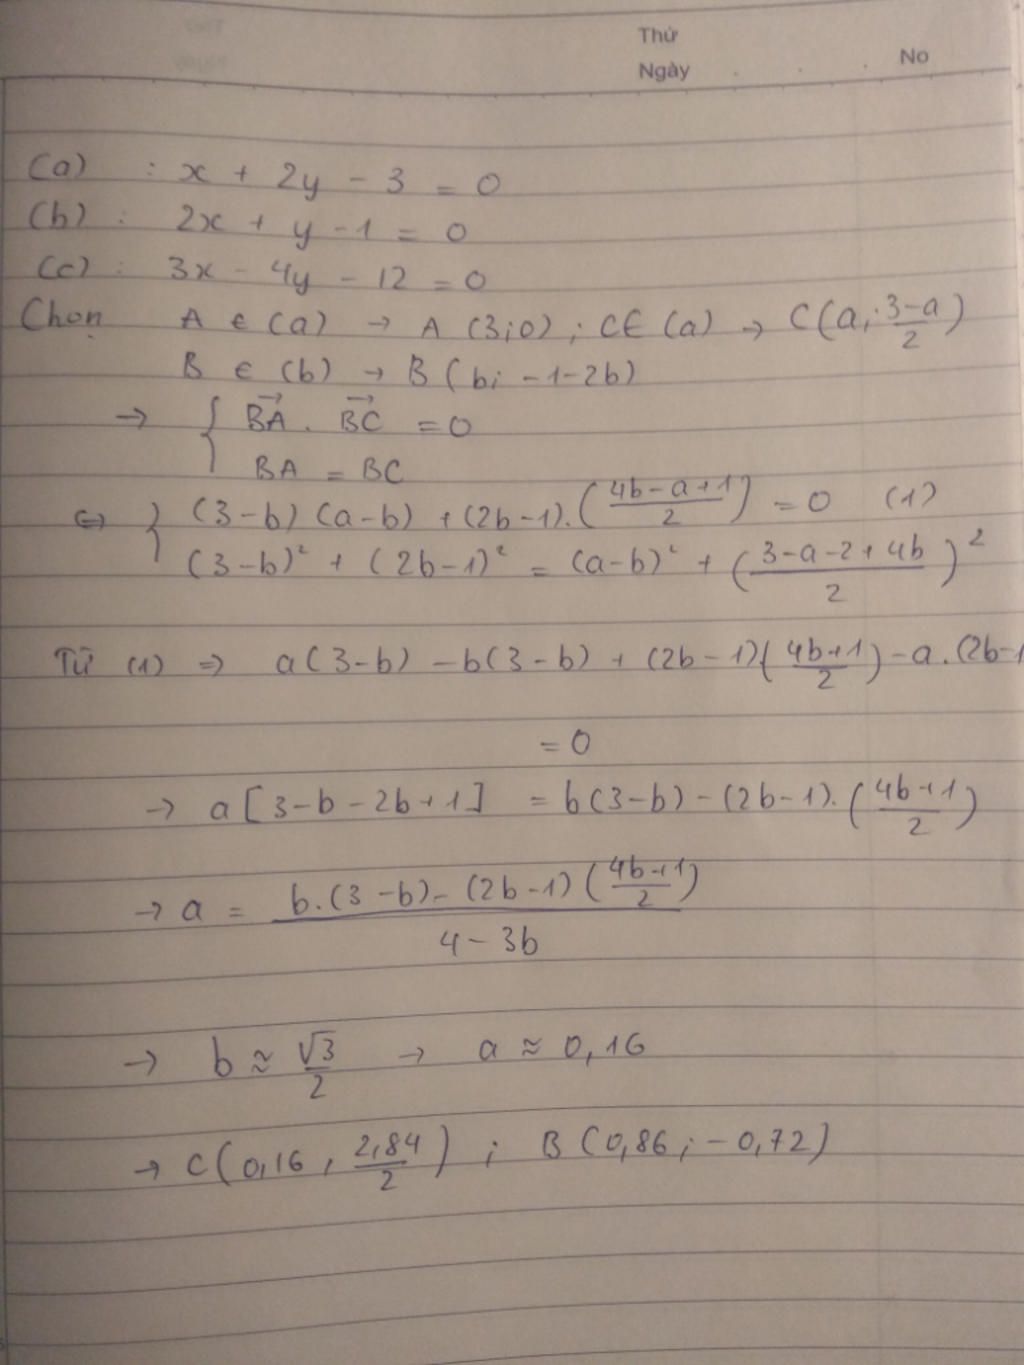 Thứ
Ngày
No
(a) : x + 2y - 3 = 0
(b) : 2x + y - 1 = 0
(c) : 3x - 4y - 12 = 0
Chọn A ∈ (a) → A (3;0) ; C ∈ (a) → C(a; \frac{3-a}{2})
B ∈ (b) → B (b; -1-2b)
→ { \vec{BA} . \vec{BC} = 0
BA = BC
⇔ { (3-b)(a-b) + (2b-1).(\frac{4b-a+1}{2}) = 0 (1)
(3-b)² + (2b-1)² = (a-b)² + (\frac{3-a-2+4b}{2})²
Từ (1) ⇒ a(3-b) - b(3-b) + (2b-1)(\frac{4b+1}{2}) - a.(2b-1
= 0
→ a[3-b-2b+1] = b(3-b) - (2b-1).(\frac{4b+1}{2})
→ a = \frac{b.(3-b) - (2b-1)(\frac{4b+1}{2})}{4-3b}
→ b ≈ \frac{√3}{2} → a ≈ 0,16
→ C(0,16 , \frac{2,84}{2}) ; B(0,86 ; -0,72)